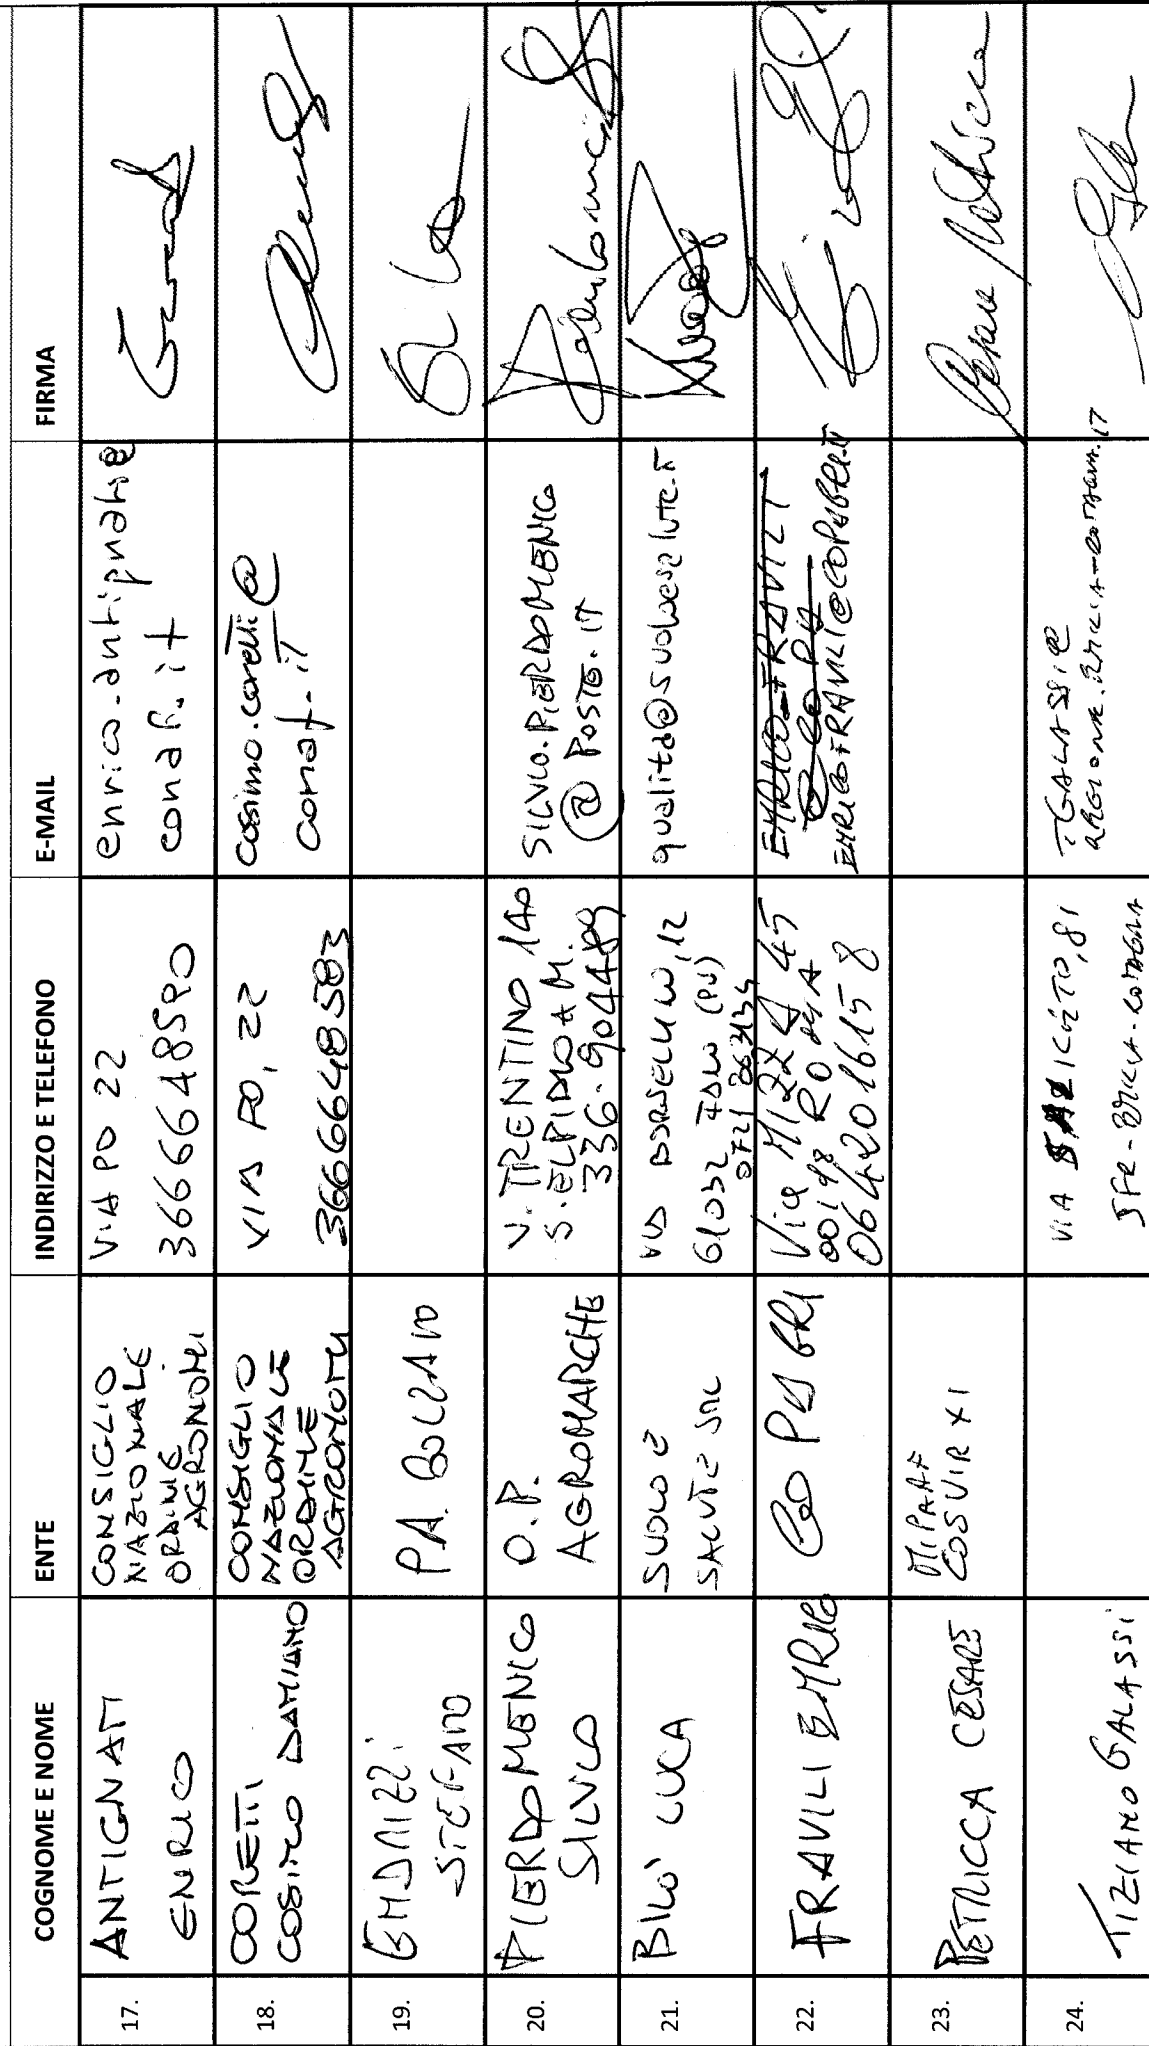 COGNOME E NOME
ENTE
INDIRIZZO E TELEFONO
E-MAIL
FIRMA
17.
ANTIGNATI
ENRICO
CONSIGLIO
NAZIONALE
ORDINE
AGRONOMI
VIA PO 22
3666648590
enrico.antignati@
conaf.it
18.
CORETTI
COSIMO DAMIANO
CONSIGLIO
NAZIONALE
ORDINE
AGRONOMI
VIA PO, 22
3666648583
cosimo.coretti@
conaf.it
19.
STEFANO
PA. BOLZANO
20.
PIERDOMENICO
SILVIO
O.P.
AGROMARCHE
V. TRENTINO 140
S. ELPIDIO A M.
336-904489
SILVIO.PIERDOMENICO
@ POSTE.IT
21.
BILO' LUCA
SUOLO E
SALUTE SRL
61032 FANO (PU)
qualita@suoloesalute.it
22.
FRAVILI EMRICO
COPAGRI
Via NIZZA 45
00198 ROMA
06 42016158
EMRICO.FRAVILI
EMRICOFRAVILI@COPAGRI.IT
23.
PETRICCA CESARE
MIPAAF
COSVIR XI
24.
TIZIANO GALASSI
VIA
,81
SFR - EMILIA-ROMAGNA
TGALASSI@
REGIONE.EMILIA-ROMAGNA.IT